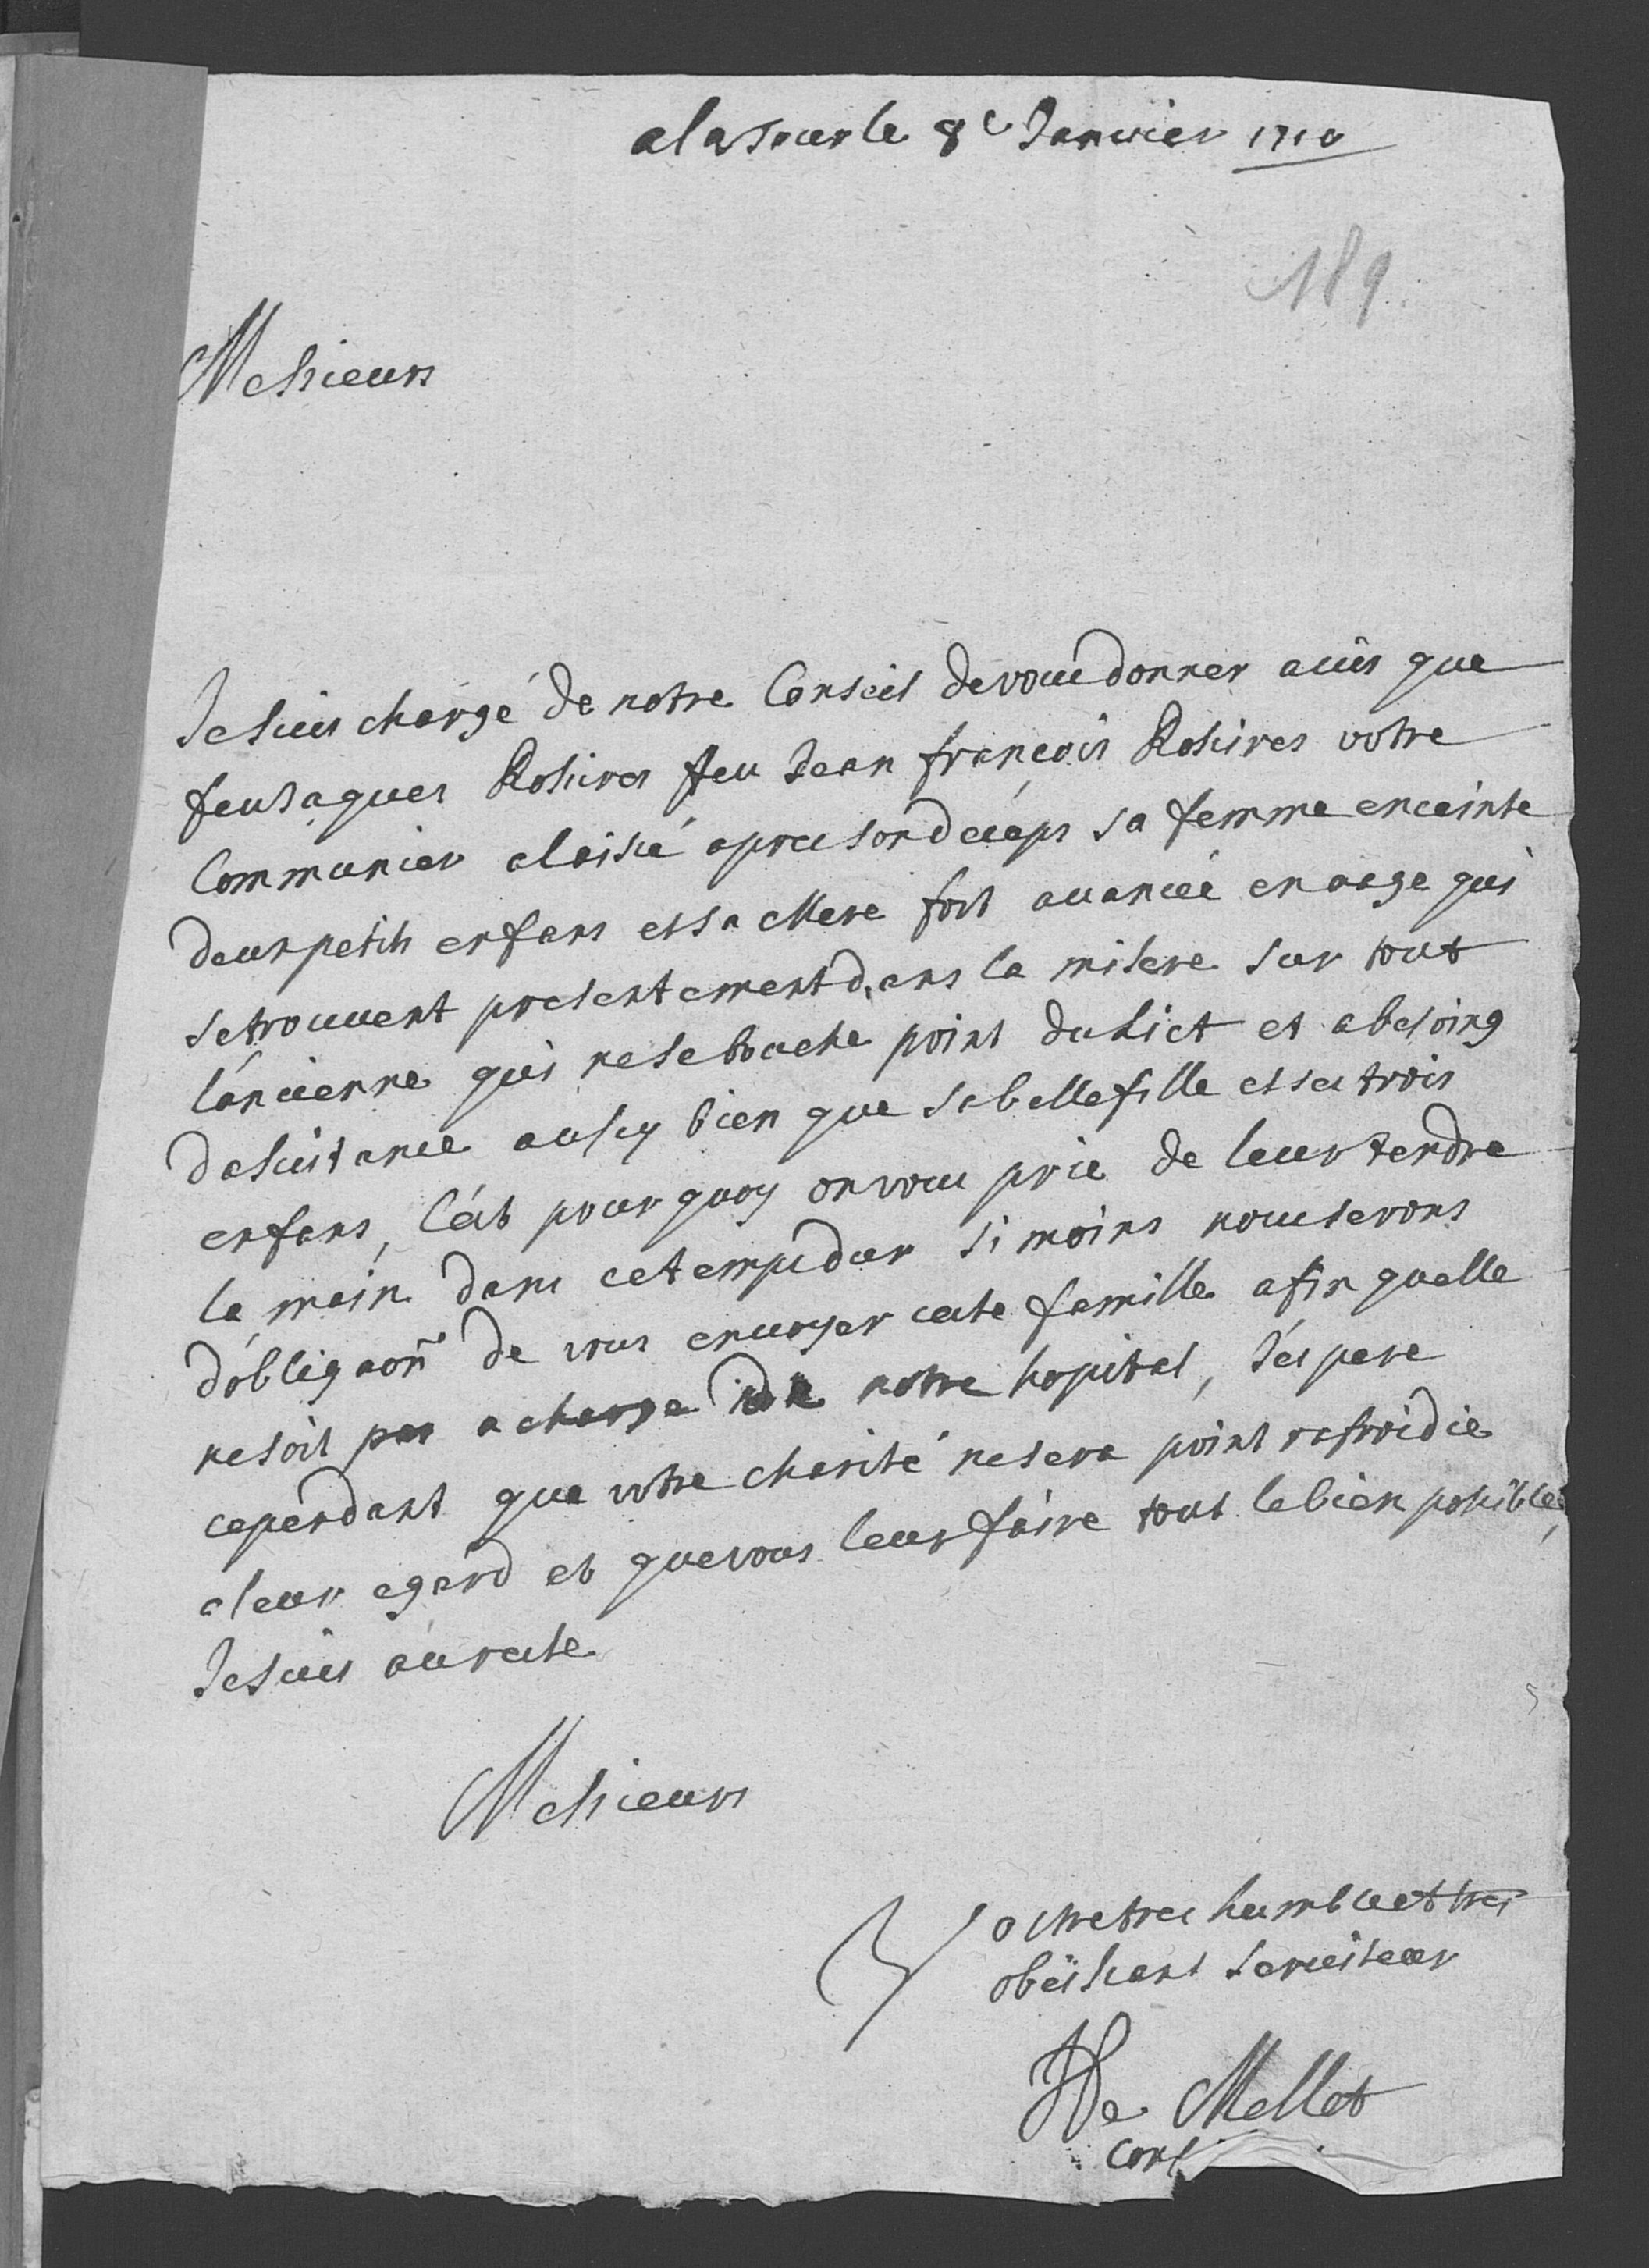 a la Tour le 8e Januier 1710
189
Messieurs
Je suis chargé de notre Conseil de vous donner auis que
feu Jaques Rosiires feu Jean françois Rosiires votre
Communier a laissé apres son deceps sa femme enceinte
deux petits enfans et sa Mere fort auancée en aage qui
se trouuent presentement dans la misere sur tout
l'ancienne qui ne se bouche point du Lict et a besoing
dassistance aussy bien que sa belle fille et ses trois
enfans, C'est pourquoy on vous prie de leur tendre
la main dans ce temps dur si moins nous serons
d'obligaoñ de vous enuoyer ceste famille afin quelle
ne soit pas a charge de notre hopital, J'espere
cependant que votre charité ne sera point refroidie
a leur egard et que vous leur faire tout le bien possible,
Je suis au reste
Messieurs
Votre tres humble et tres
obeissant seruiteur
De Mellet